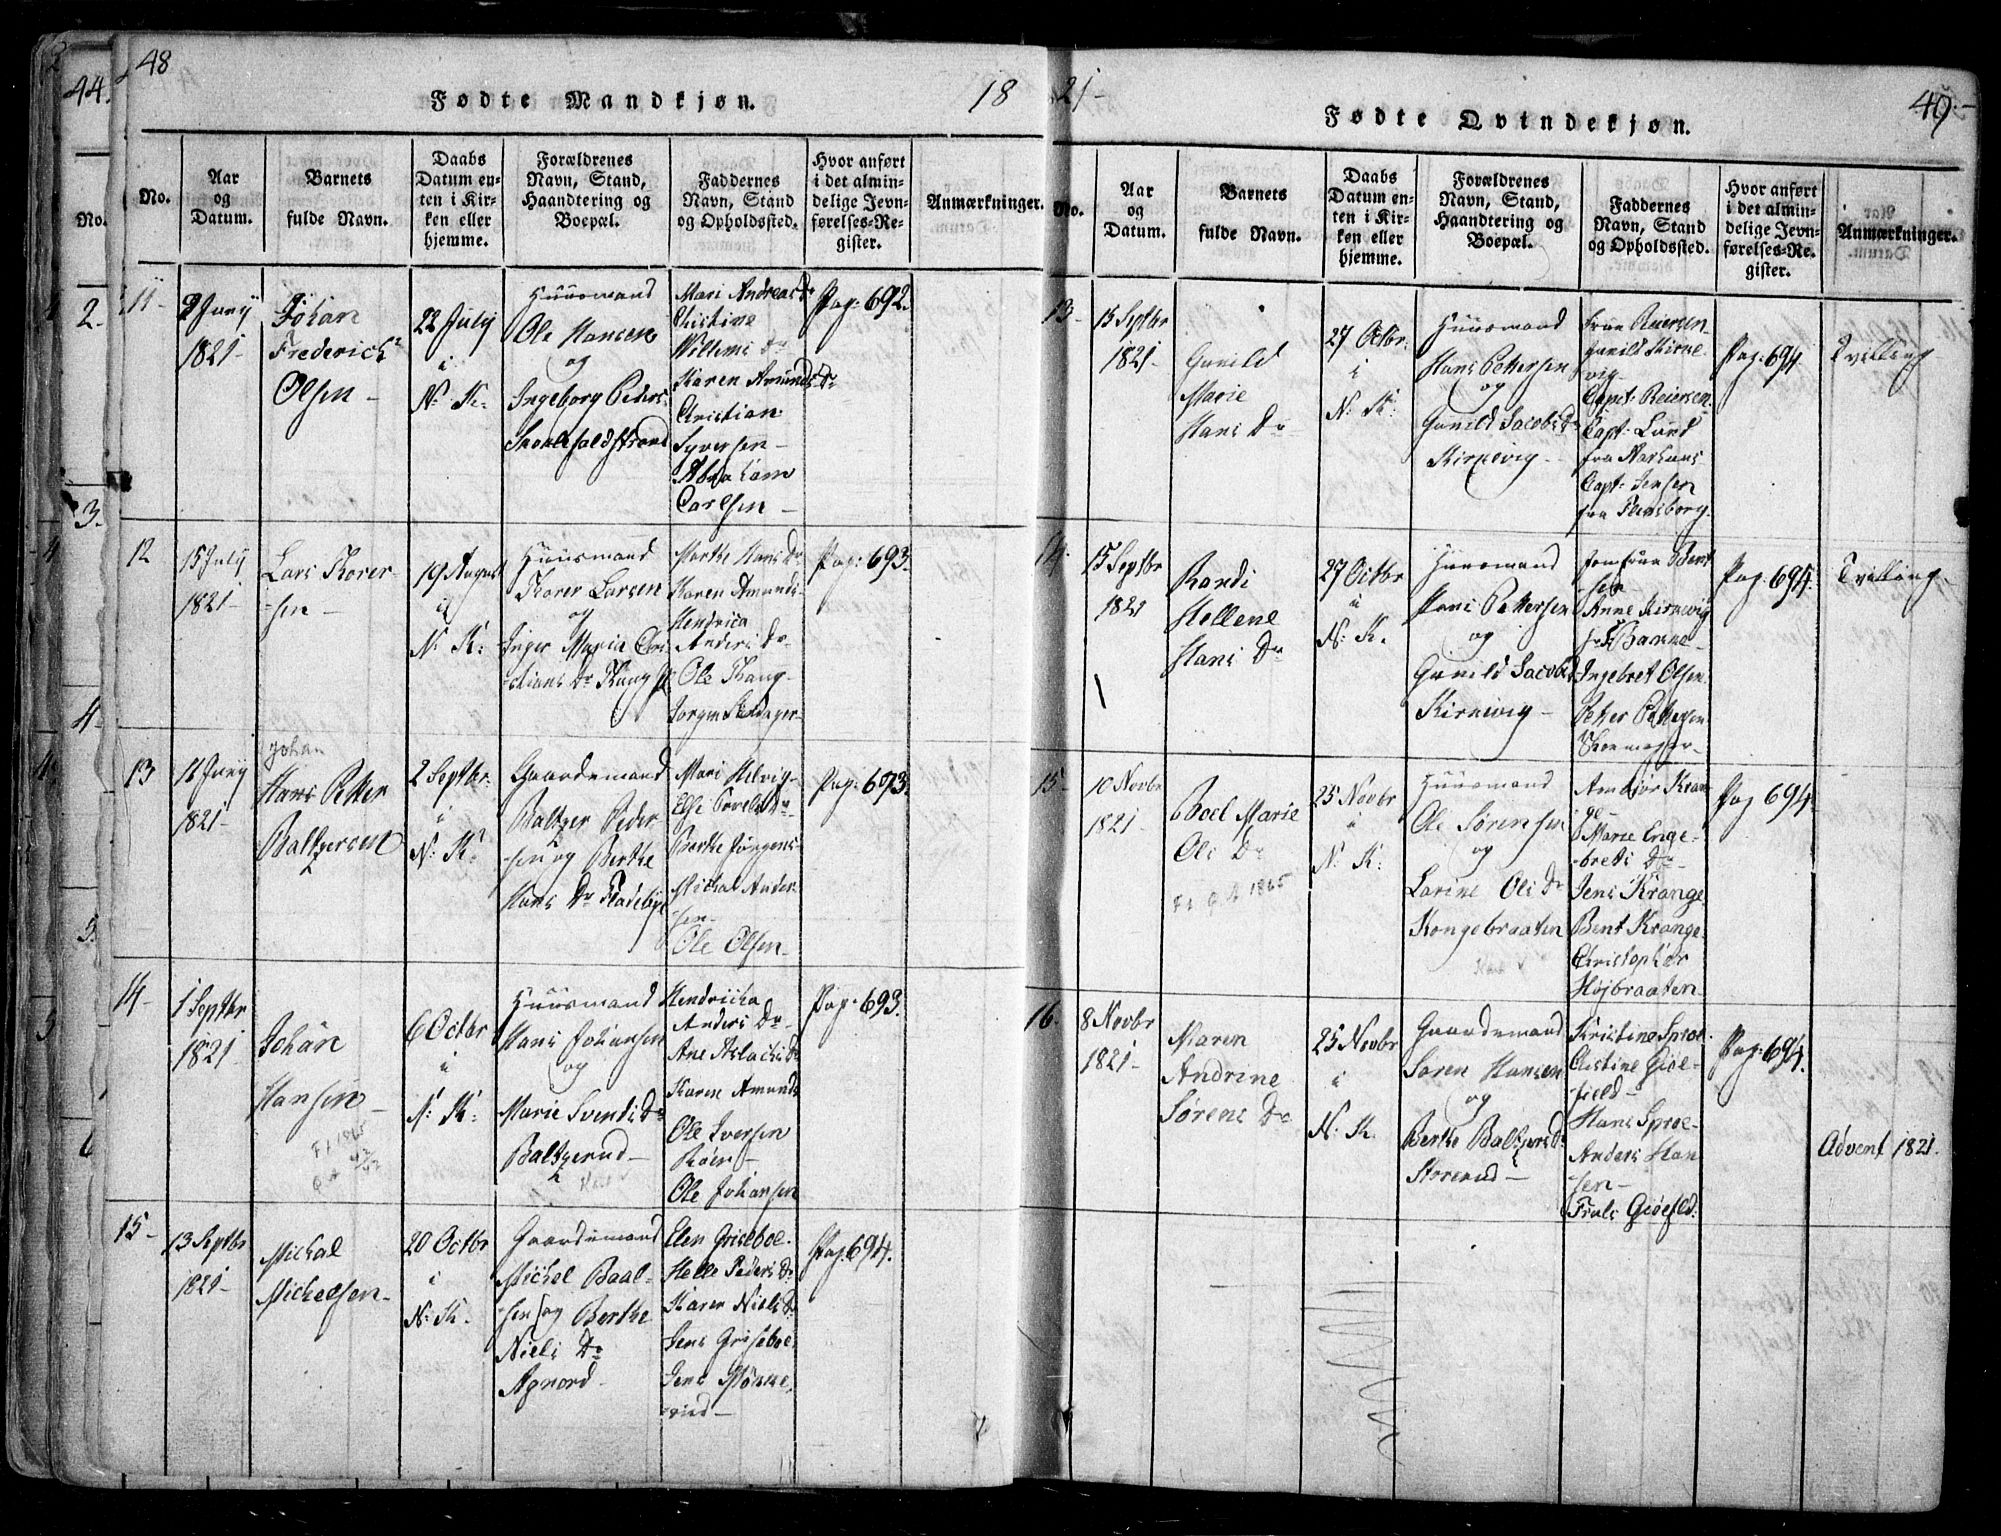 48
44.
Fødte Mandkjøn.
18
No.
Aar
og
Datum.
Barnets
fulde Navn.
Daabs
Datum en-
ten i Kir-
ken eller
hjemme.
Forældrenes
Navn, Stand,
Haandtering og
Boepæl.
Faddernes
Navn, Stand
og Opholdssted.
Hvor anført
i det almin-
delige Jevn-
førelses-Re-
gister.
Anmærkninger.
No.
2.
3.
4.
11-
1821
Johan
Frederich
Olsen -
22 July
i
N: K:
Huusmand
Ole Hansen
og
Ingeborg Peders
Mari Andreas Dr
Christine
Willems Dr
Karen Amunds Dr
Christian
Syversen -
Abraham
Carlsen -
Pag: 692.
12
15 July
1821-
Lars Thorer-
-sen -
19 August
i
N: K:
Huusmand
Thorer Larsen
og
Inger Maria Chri
-stians Dr
Marthe Hans Dr
Karen Amunds-
Hendrica
Anders Dr
Ole
Jørgen
Pag: 693.
13
1821-
Johan
Hans Petter
Baltzersen
2 Septbr.
i
N: K:
Gaardemand
Baltzer Peder
-sen og Berthe
Hans Dr Fladebye
Mari Helvig-
Else
Berthe Jörgens-
Michal Ander
-sen-
Ole Olsen-
Pag: 693.
14-
1 Septbr
1821
Johan
Hansen -
Ft 1865
6 Octbr
i
N: K:
Huusmand
Hans Johansen
og
Marie Svends Dr
Baltzerud-
Hendricka
Anders Dr-
Ane Aslachs Dr
Karen Amunds
Ole Iversen
Røer-
Ole Johansen
Pag: 693.
15-
13 Septbr
1821-
Michal
Michelsen-
20 Octbr
i
N: K.
Gaardemand
Michel Baal-
-sen og Berthe
Niels Dr
Agnord-
Elen Griseboe-
Helle Peders Dr
Karen Niels Dr
Jens Griseboe
Jens
-rud-
Pag: 694.
21-
49.-
Fødte Qvindekjøn.
No.
Aar
og
Datum.
Barnets
fulde Navn.
Daabs
Datum en-
ten i Kir-
ken eller
hjemme.
Forældrenes
Navn, Stand,
Haandtering og
Boepæl.
Faddernes
Navn, Stand
og Opholdssted.
Hvor anført
i det almin-
delige Jevn-
førelses-Re-
gister.
Anmærkninger.
13-
15 Septbr
1821-
Gunild
Marie
Hans Dr
27 Octbr.
i
N: K:
Huusmand
Hans Pettersen
og
Gunild Jacobs Dr
Kirnevig-
Frue Reiersen-
Gunild Kirne-
vig-
Capt: Reiersen.
Capt: Lund
fra Aarhuus
Capt: Jensen
fra Flensborg.
Pag: 694.
Tvilling
14.
15 Septbr
1821
Randi
Hellene
Hans Dr
27 Octbr
i
N: K.
Huusmand
Hans Pettersen
og
Gunild Jacobs
Kirnevig-
Jomfrue Bent
-sen-
Anne Kirnevig
Ingebret Olsen
Peter Pettersen
Pag: 694.
Tvilling.
15-
10 Novbr
1821-
Boel Marie
Ols Dr
1865
25 Novbr
i
N: K:
Huusmand
Ole Sörensen
og
Larine Ols Dr
Kongebraaten
Ambjør Kran
ge-
Marie Enge-
-brets Dr-
Jens Krange
Bent Krange-
Christopher
Højbraaten-
Pag 694.
16.
8 Novbr
1821-
Maren
Andrine
Sørens Dr
25 Novbr
i
N: K.
Gaardemand
Søren Hansen
og
Berthe Baltzers Dr
Storerud-
Kristine Sproe-
Christine Giöe-
field-
Hans Sproe-
Anders Han
-sen-
Truls Giöefld:
Pag: 694.
Advent 1821.